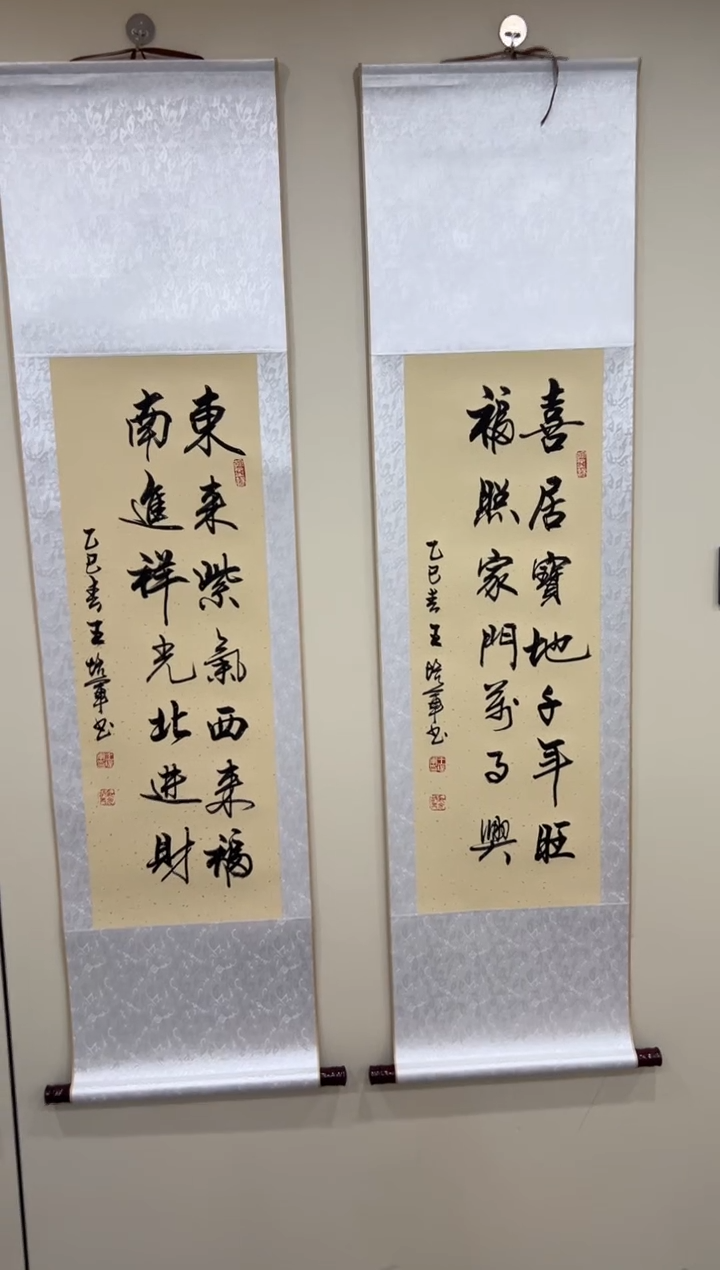 喜居寶地千年旺
福照家門萬事興
乙巳春王培軍书
東来紫氣西来福
南進祥光北進財
乙巳春王培軍书